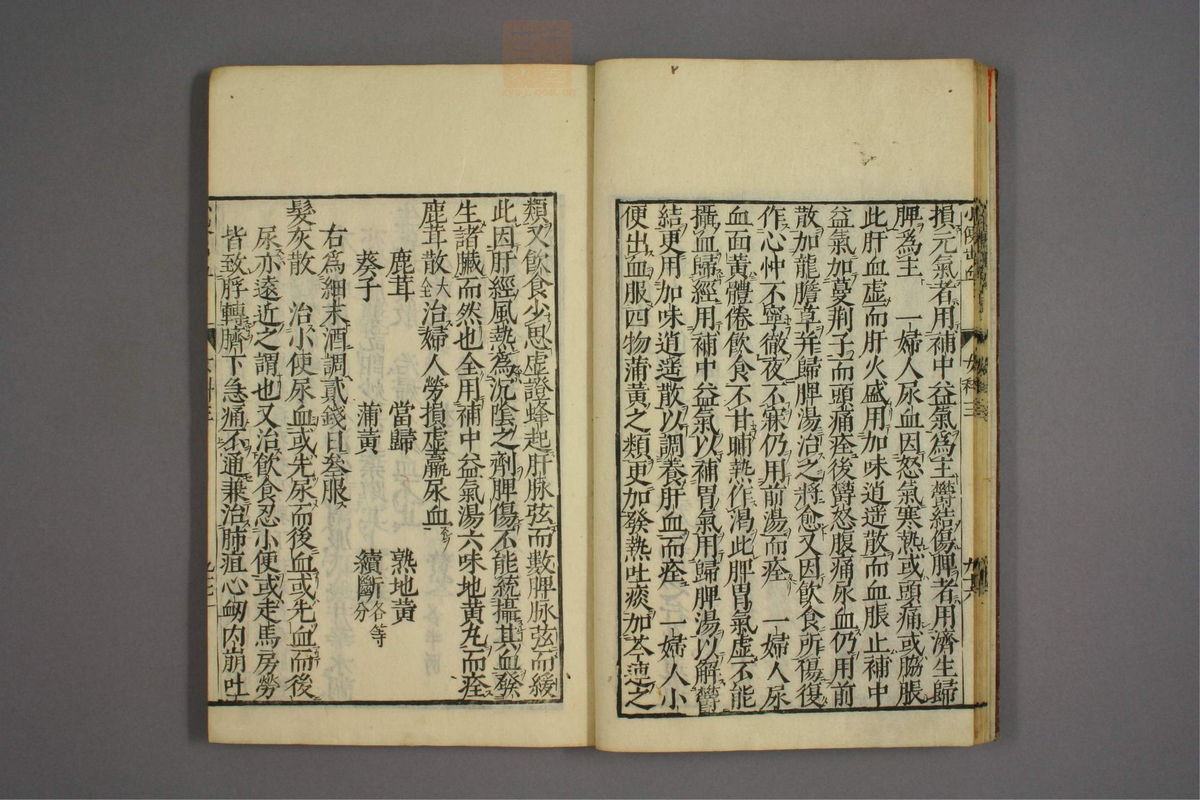 損元氣者用補中益氣爲主欝結傷脾者用濟生歸
脾爲主　一婦人尿血因怒氣寒熱或頭痛或脇脹
此肝血虚而肝火盛用加味逍遥散而血脹止補中
益氣加蔓荆子而頭痛痊後欝怒腹痛尿血仍用前
散加龍膽草并歸脾湯治之將愈又因飲食所傷復
作心忡不寧徹夜不寐仍用前湯而痊　一婦人尿
血面黄體倦飲食不甘晡熱作渇此脾胃氣虚不能
攝血歸經用補中益氣以補胃氣用歸脾湯以解欝
結更用加味逍遥散以調養肝血而痊　一婦人小
便出血服四物蒲黄之類更加發熱吐痰加芩連之
類又飲食少思虚證蜂起肝脉弦而數脾脉弦而緩
此因肝經風熱爲沉陰之劑脾傷不能統攝其血發
生諸臓而然也全用補中益氣湯六味地黄丸而痊
鹿茸散大全治婦人勞損虚羸尿血
鹿茸　當歸　熟地黄
葵子　蒲黄　續斷各等分
右爲細末酒調貳錢日叄服
髮灰散　治小便尿血或先尿而後血或先血而後
尿亦遠近之謂也又治飲食忍小便或走馬房勞
皆致脬轉臍下急痛不通兼治肺疽心衂内崩吐